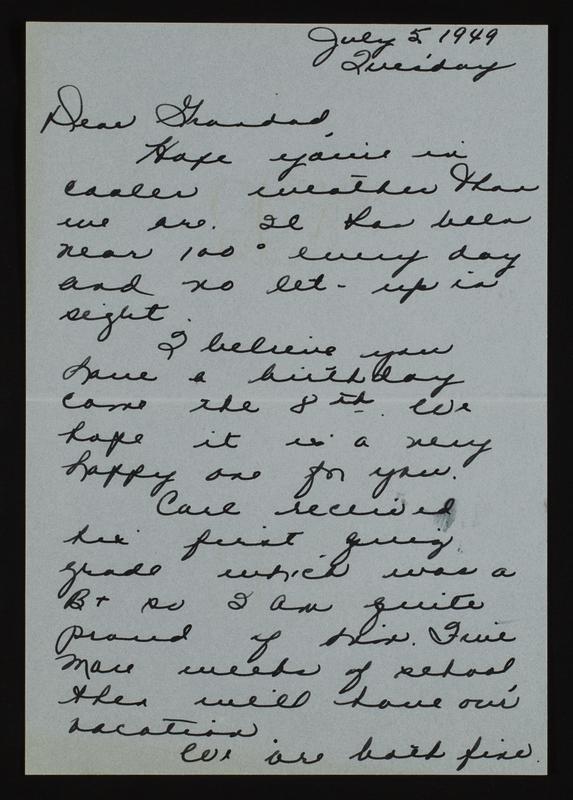 July 5 1949
Tuesday
Dear Grandad,
Hope you're in
cooler weather than
we are. It has been
near 100° every day
and no let-up in
sight.
I believe you
have a birthday
come the 8th. We
hope it is a very
happy one for you.
Carl received
his first quiz
grade which was a
B+ so I am quite
proud of him. Five
more weeks of school
then we'll have our
vacation.
We are both fine.